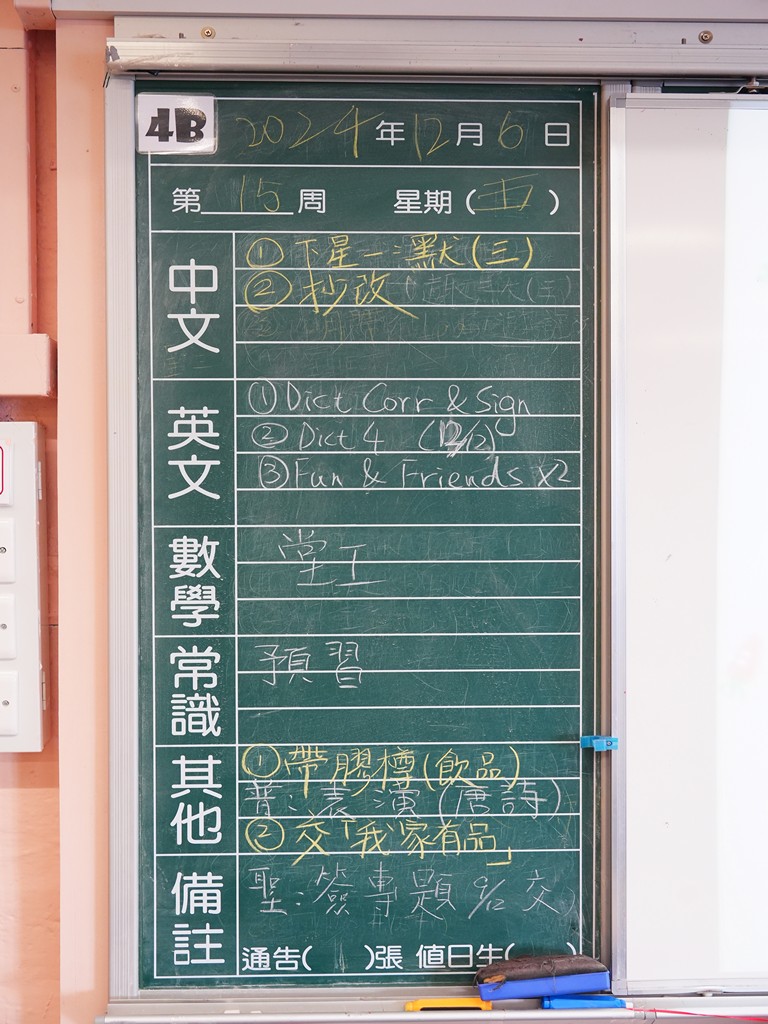 4B 2024年12月6日
第15周 星期(五)
中文
① 下星一:默(三)
② 抄改
英文
① Dict Corr & Sign
② Dict 4 (12/12)
③ Fun & Friends x2
數學
堂工
常識
預習
其他
① 帶膠樽(飲品)
普:表演(唐詩)
② 交「我家有品」
備註
聖:簽專題 9/12 交
通告( )張 值日生( )